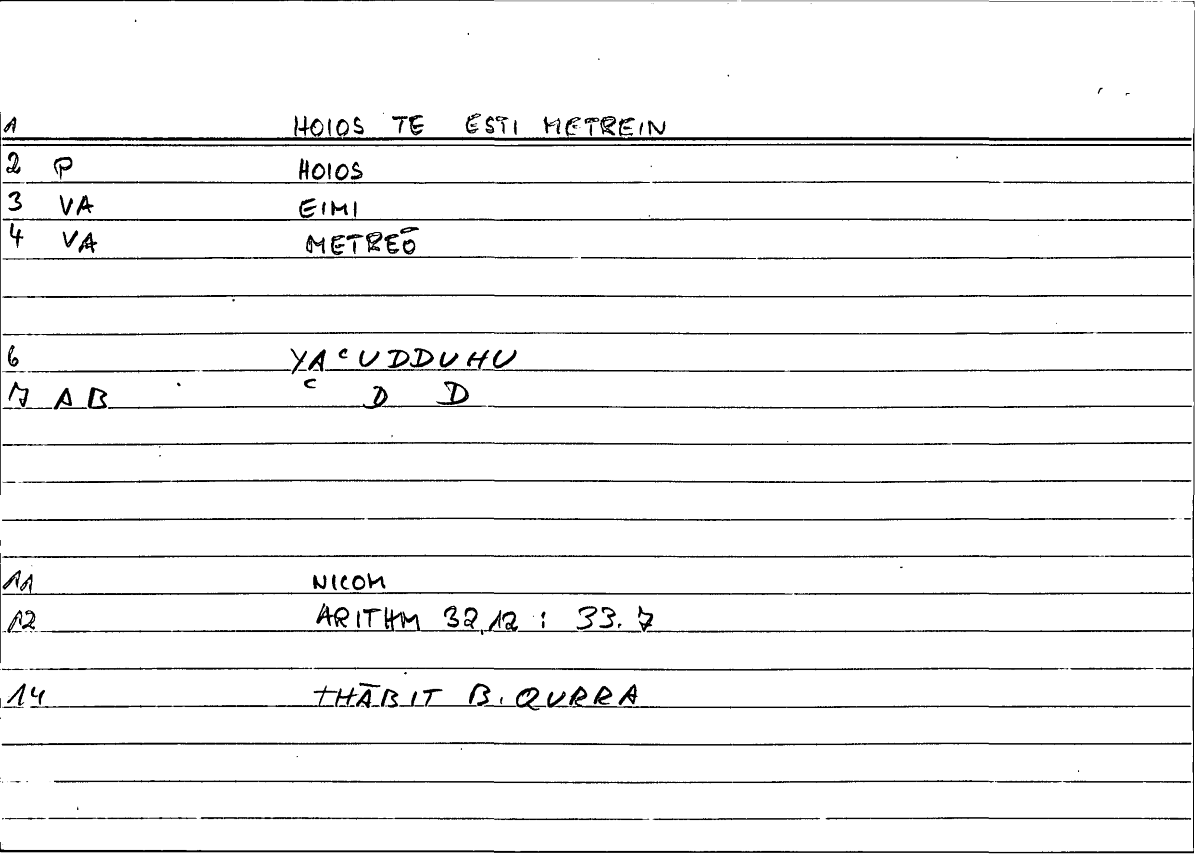 1 HOIOS TE ESTI METREIN
2 P HOIOS
3 VA EIMI
4 VA METREŌ
6 YAᶜUDDUHU
7 AB ᶜ D D
11 NICOM
12 ARITHM 32,12 : 33.7
14 THĀBIT B. QURRA